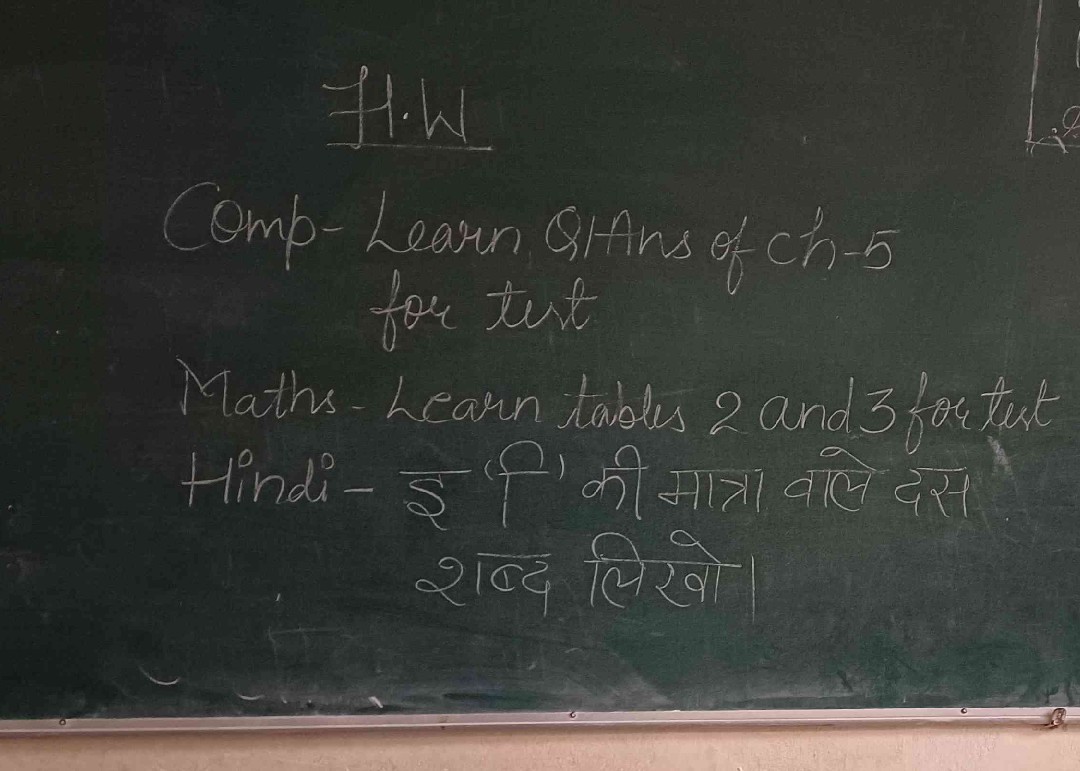 H.W
Comp- Learn Q/Ans of ch-5
for test
Maths - Learn tables 2 and 3 for test
Hindi - इ 'ि' की मात्रा वाले दस
शब्द लिखो।